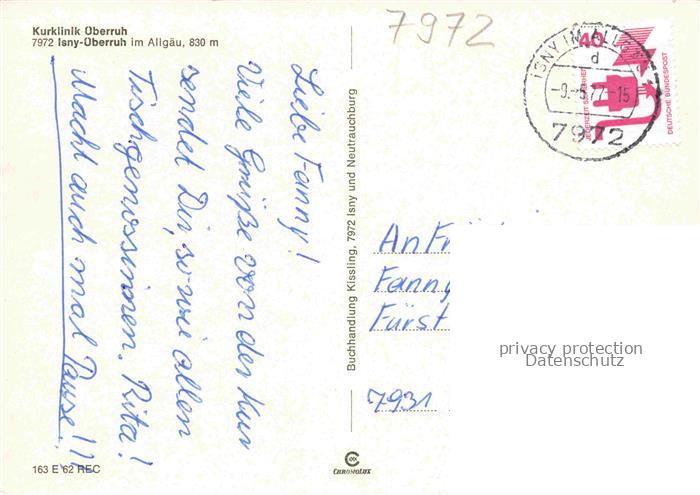 Kurklinik Überruh
7972 Isny-Überruh im Allgäu, 830 m
Liebe Fanny!
Viele Grüße von der Kur
sendet Dir, sowie allen
Tischgenossinnen. Rita!
Macht auch mal Pause!!!
163 E 62 REC
Buchhandlung Kissling, 7972 Isny und Neutrauchburg
CHROMOLUX
7972
40
JEDERZEIT SICHERHEIT
DEUTSCHE BUNDESPOST
ISNY IM ALLG
d
-9.-5.77-15
7972
An Fr
Fanny
Fürst
7931
privacy protection
Datenschutz